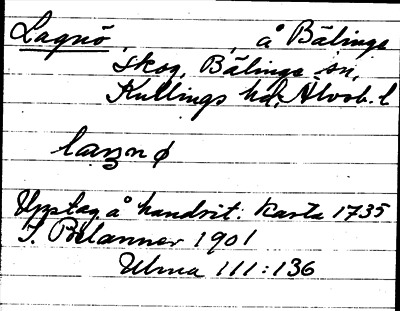 Lagnö , , å Bälinge
skog, Bälinge sn,
Kullings hd, Älvsb. l
laŋnø
Upptag å handrit. karta 1735
J. Belanner 1901
Ulma 111:136